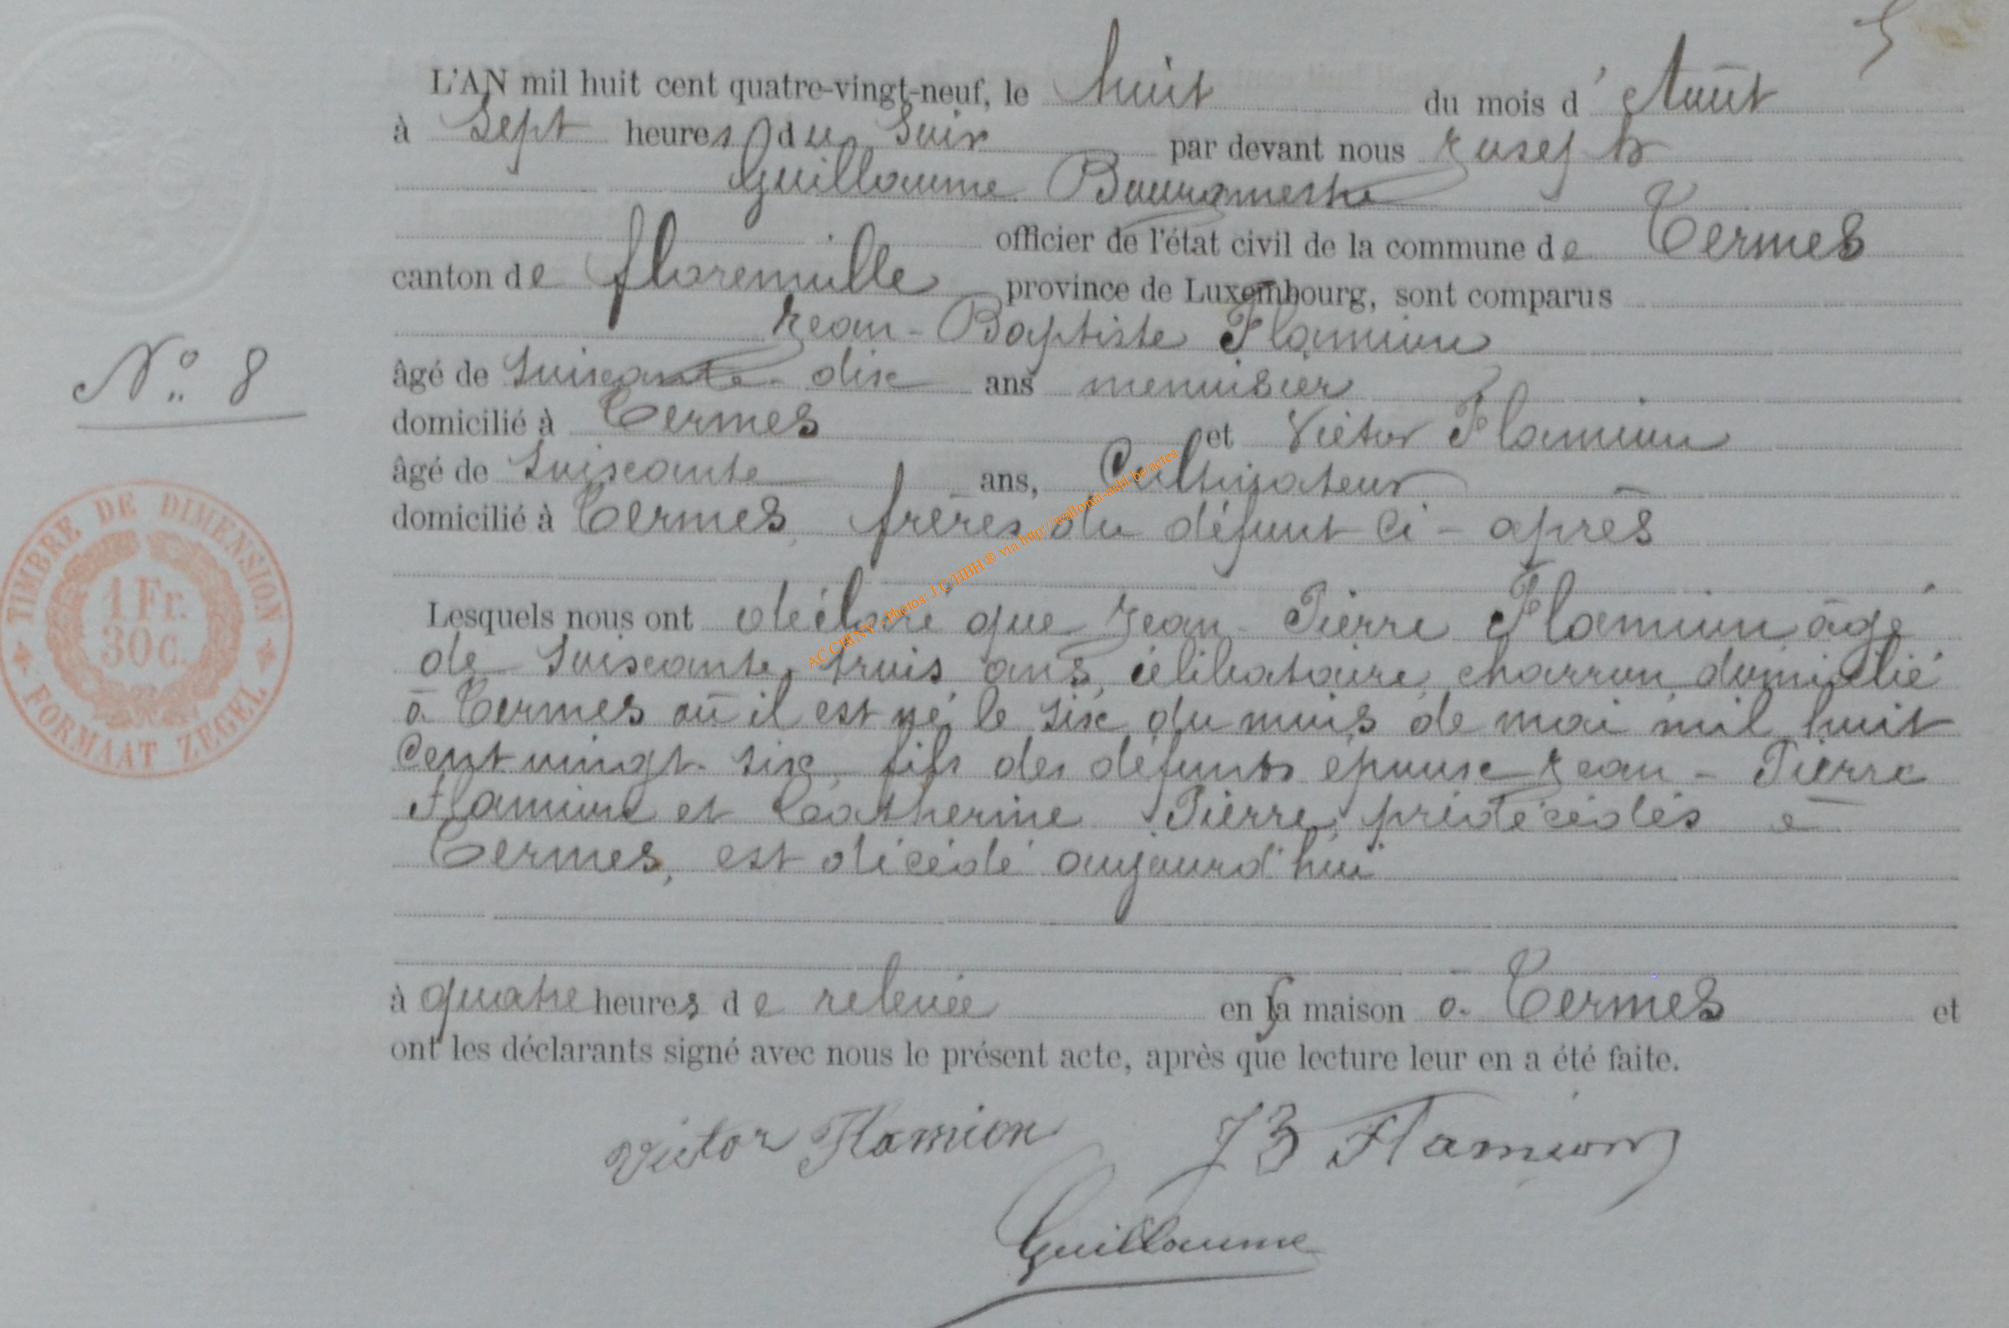 5
L'AN mil huit cent quatre-vingt-neuf, le huit du mois d'Août
à sept heures du soir par devant nous Joseph
Guillaume Bourgmestre
officier de l'état civil de la commune de Termes
canton de florenville province de Luxembourg, sont comparus
Jean-Baptiste Flamion
N° 8
âgé de soixante-dix ans menuisier
domicilié à Termes et Victor Flamion
âgé de soixante ans, Cultivateur
domicilié à Termes, frères du défunt ci-après
Lesquels nous ont déclaré que Jean-Pierre Flamion âgé
de soixante trois ans, célibataire, charron, domicilié
à Termes où il est né le six du mois de mai mil huit
cent vingt-six, fils des défunts époux Jean-Pierre
Flamion et Catherine Pierre, prédécédés à
Termes, est décédé aujourd'hui
à quatre heures de relevée en sa maison à Termes et
ont les déclarants signé avec nous le présent acte, après que lecture leur en a été faite.
Victor Flamion JB Flamion
Guillaume
TIMBRE DE DIMENSION
1 Fr.
30 c.
FORMAAT ZEGEL
AC CHINY - Photos: J C HBH ® via